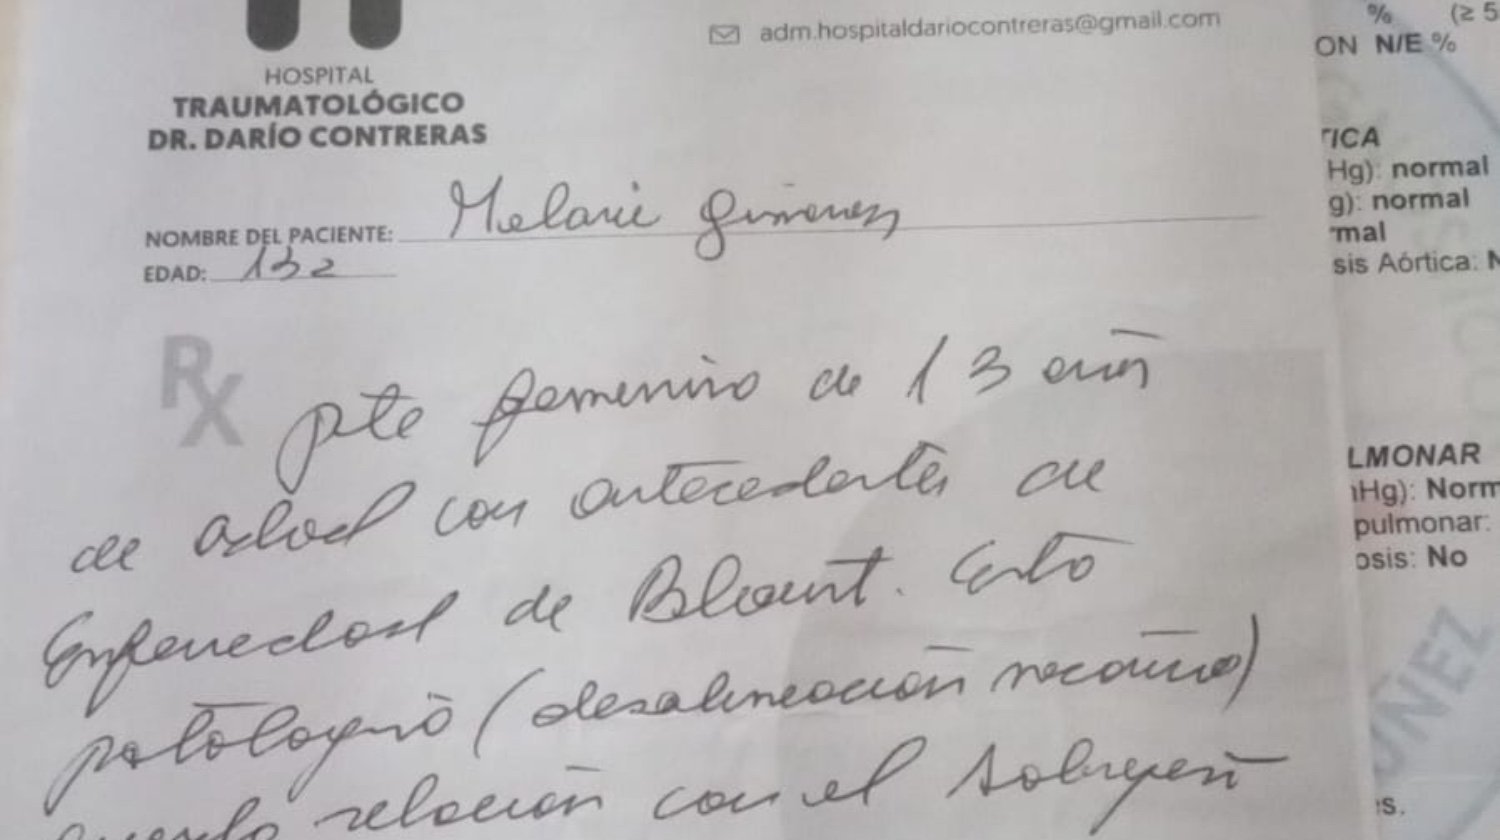 adm.hospitaldariocontreras@gmail.com
HOSPITAL
TRAUMATOLÓGICO
DR. DARÍO CONTRERAS
NOMBRE DEL PACIENTE: Melanie Gimenez
EDAD: 13a
Rx
pte femenino de 13 años
de edad con antecedentes de
Enfermedad de Blount. Esta
patología (desalineación mecánica)
relación con el sobrepeso
% (≥ 5
ON N/E %
TICA
Hg): normal
g): normal
mal
sis Aórtica: N
LMONAR
Hg): Norm
pulmonar:
osis: No
ÚÑEZ
s.